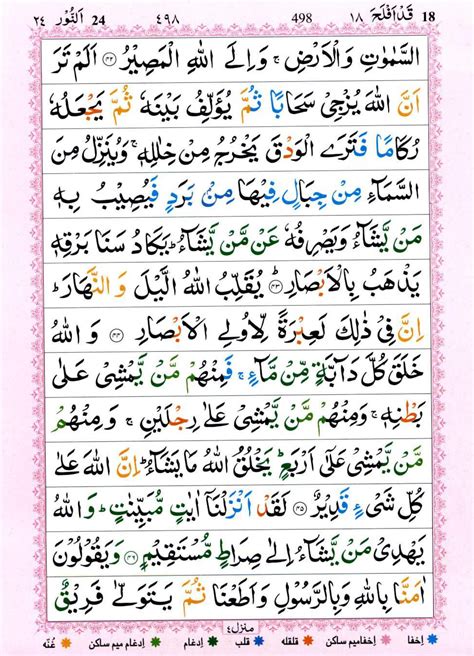 18 قَدْ اَفْلَحَ ١٨ 498 ٤٩٨ 24 اَلنُّوْر ٢٤
السَّمٰوٰتِ وَالْاَرْضِ ۚ وَاِلَى اللّٰهِ الْمَصِيْرُ ﴿٤٢﴾ اَلَمْ تَرَ
اَنَّ اللّٰهَ يُزْجِىْ سَحَابًا ثُمَّ يُؤَلِّفُ بَيْنَهٗ ثُمَّ يَجْعَلُهٗ
رُكَامًا فَتَرَى الْوَدْقَ يَخْرُجُ مِنْ خِلٰلِهٖ ۚ وَيُنَزِّلُ مِنَ
السَّمَآءِ مِنْ جِبَالٍ فِيْهَا مِنْۢ بَرَدٍ فَيُصِيْبُ بِهٖ
مَنْ يَّشَآءُ وَيَصْرِفُهٗ عَنْ مَّنْ يَّشَآءُ ؕ يَكَادُ سَنَا بَرْقِهٖ
يَذْهَبُ بِالْاَبْصَارِ ؕ ﴿٤٣﴾ يُقَلِّبُ اللّٰهُ الَّيْلَ وَالنَّهَارَ ؕ
اِنَّ فِىْ ذٰلِكَ لَعِبْرَةً لِّاُولِى الْاَبْصَارِ ﴿٤٤﴾ وَاللّٰهُ
خَلَقَ كُلَّ دَآبَّةٍ مِّنْ مَّآءٍ ۚ فَمِنْهُمْ مَّنْ يَّمْشِىْ عَلٰى
بَطْنِهٖ ۚ وَمِنْهُمْ مَّنْ يَّمْشِىْ عَلٰى رِجْلَيْنِ ۚ وَمِنْهُمْ
مَّنْ يَّمْشِىْ عَلٰٓى اَرْبَعٍ ؕ يَخْلُقُ اللّٰهُ مَا يَشَآءُ ؕ اِنَّ اللّٰهَ عَلٰى
كُلِّ شَىْءٍ قَدِيْرٌ ﴿٤٥﴾ لَقَدْ اَنْزَلْنَاۤ اٰيٰتٍ مُّبَيِّنٰتٍ ؕ وَاللّٰهُ
يَهْدِىْ مَنْ يَّشَآءُ اِلٰى صِرَاطٍ مُّسْتَقِيْمٍ ﴿٤٦﴾ وَيَقُوْلُوْنَ
اٰمَنَّا بِاللّٰهِ وَبِالرَّسُوْلِ وَاَطَعْنَا ثُمَّ يَتَوَلّٰى فَرِيْقٌ
منزل٤
اِخفا اِخفامیم ساکن قلقله قلب اِدغام اِدغام میم ساکن غُنّه